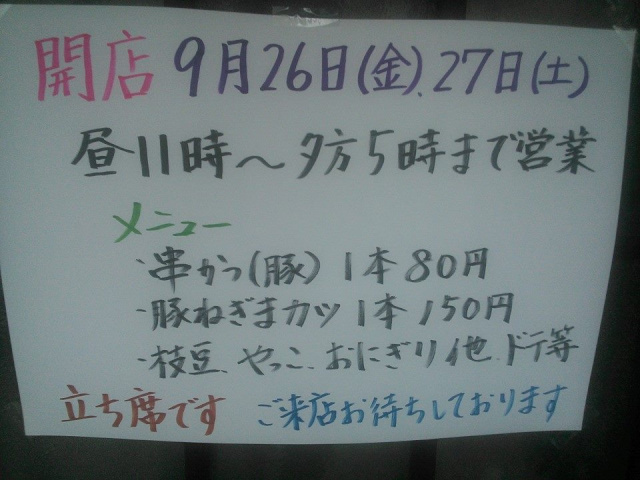 開店 9月26日(金).27日(土)
昼11時〜夕方5時まで営業
メニュー
・串かつ(豚) 1本 80円
・豚ねぎまカツ 1本 150円
・枝豆、やっこ、おにぎり他、ドテ等
立ち席です ご来店お待ちしております